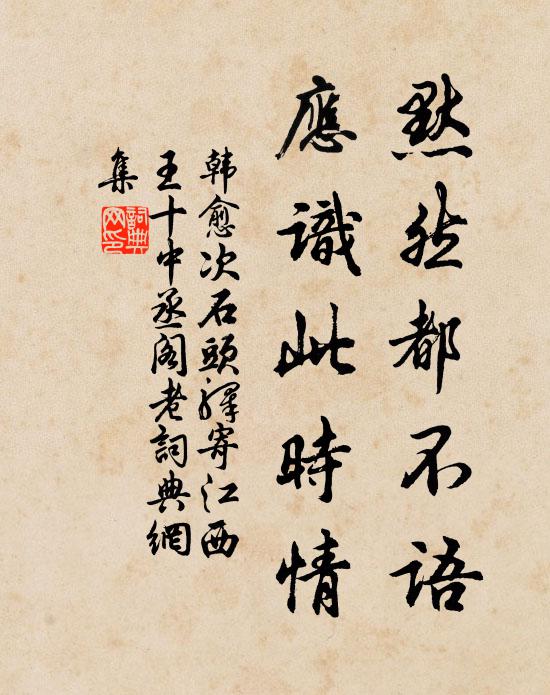 默然都不语
應識此時情
韩愈次石頭驛寄江西
王十中丞閣老詞典網
集
詞典
网印